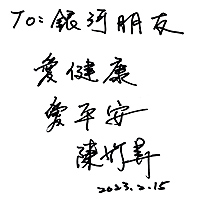 To: 銀河朋友
愛健康
愛平安
陳
2023.2.15